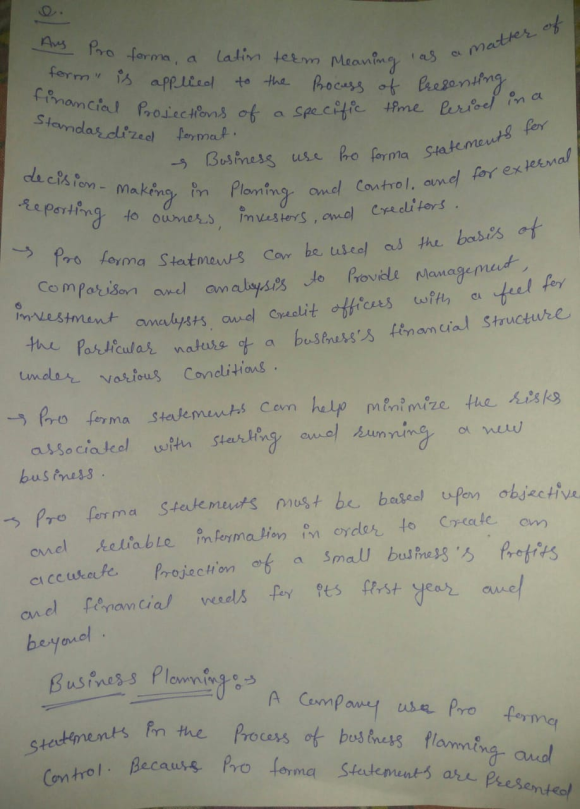 Q.
Ans Pro forma, a latin term Meaning 'as a matter of
form" is applied to the Process of Presenting
financial Projections of a specific time Period in a
Standardized format.
→ Business use Pro forma statements for
decision-making in Planing and Control, and for external
reporting to owners, investors, and Creditors.
→ Pro forma Statments Can be used as the basis of
Comparison and analysis to Provide Management,
investment analysts, and Credit officers with a feel for
the Particular nature of a business's financial structure
under various Conditions.
→ Pro forma statements Can help minimize the risks
associated with starting and running a new
business.
→ Pro forma Statements must be based upon objective
and reliable information in order to Create an
accurate Projection of a small business's Profits
and financial needs for its first year and
beyond.
Business Planning:→
A Company use Pro forma
statements in the Process of business Planning and
Control. Because Pro forma Statements are Presented